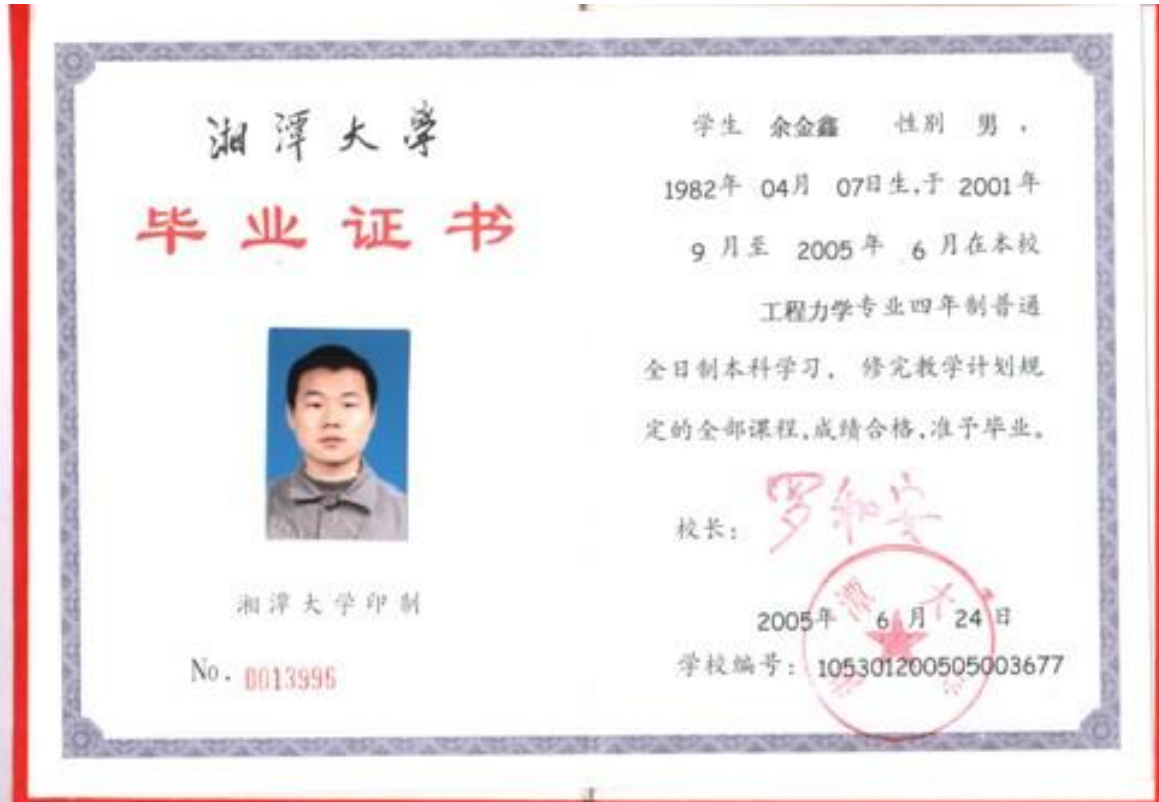 湘潭大学
毕业证书
湘潭大学印制
No. 0013996
学生 余金鑫 性别 男 ,
1982年 04月 07日生,于 2001年
9 月至 2005年 6 月在本校
工程力学专业四年制普通
全日制本科学习, 修完教学计划规
定的全部课程,成绩合格,准予毕业。
校长: 罗和安
2005年 6 月 24日
学校编号: 105301200505003677
湘潭大学